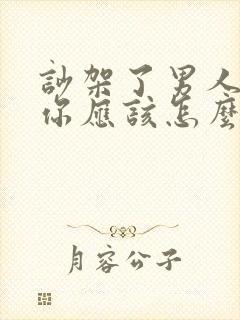 訟架了男人
你應該怎麼
月容公子